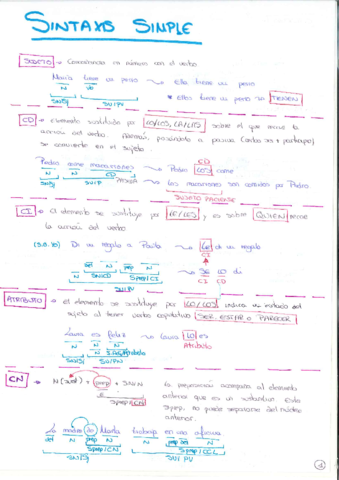 SINTAXIS SIMPLE
SUJETO → Concordancia en número con el verbo
María tiene un perro → Ella tiene un perro
N
SN/Sj SV/PV
* Ellas tienen un perro → TIENEN
CD → elemento sustituido por LO/LOS, LA/LAS sobre el que recae la
acción del verbo. Además, pasándolo a pasiva (verbo ser + participio)
se convierte en el sujeto.
CD
Pedro come macarrones → Pedro LOS come
N N CD
SN/Sj SV/P → Los macarrones son comidos por Pedro.
SUJETO PACIENTE
CI → El elemento se sustituye por LE/LES, y es sobre QUIEN recae
la acción del verbo
Di un regalo a Paula → LE di un regalo
CI
det N prep N → SE LO di
N SN/CD Sprep/CI CI CD
SV/PV
ATRIBUTO → el elemento se sustituye por LO/LOS, indica un estado del
sujeto al tener verbo copulativo SER, ESTAR o PARECER
Laura es feliz → Laura LO es
N N N Atributo
SN/Sj SV/PN
CN → N (sust) + prep + SN/N la preposición acompaña al elemento
anterior que es un sustantivo. Este
Sprep/CN Sprep. no puede separarse del núcleo
anterior.
La madre de Marta trabaja en una oficina
det N prep N N prep det N
Sprep/CN Sprep/CCL
SN/Sj SV/PV
1